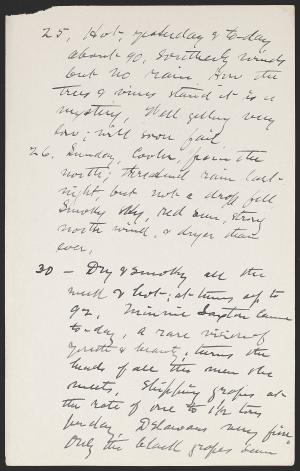 25, Hot, yesterday & to-day
about 90, Southerly winds
but no rain. How the
trees & vines stand it is a
mystery, Well getting very
low; will soon fail.
26, Sunday, Cooler, from the
north; threatened rain last-
night, but not a drop fell
Smoky sky, red sun, strong
north wind, & dryer than
ever.
30 - Dry & smoky all the
week & hot; at times up to
92. Minnie Saxton came
to-day, a rare vision of
youth & beauty; turns the
heads of all the men she
meets. Shipping grapes at
the rate of one to 1½ tons
per day, Delawares very fine
Only the black grapes seem